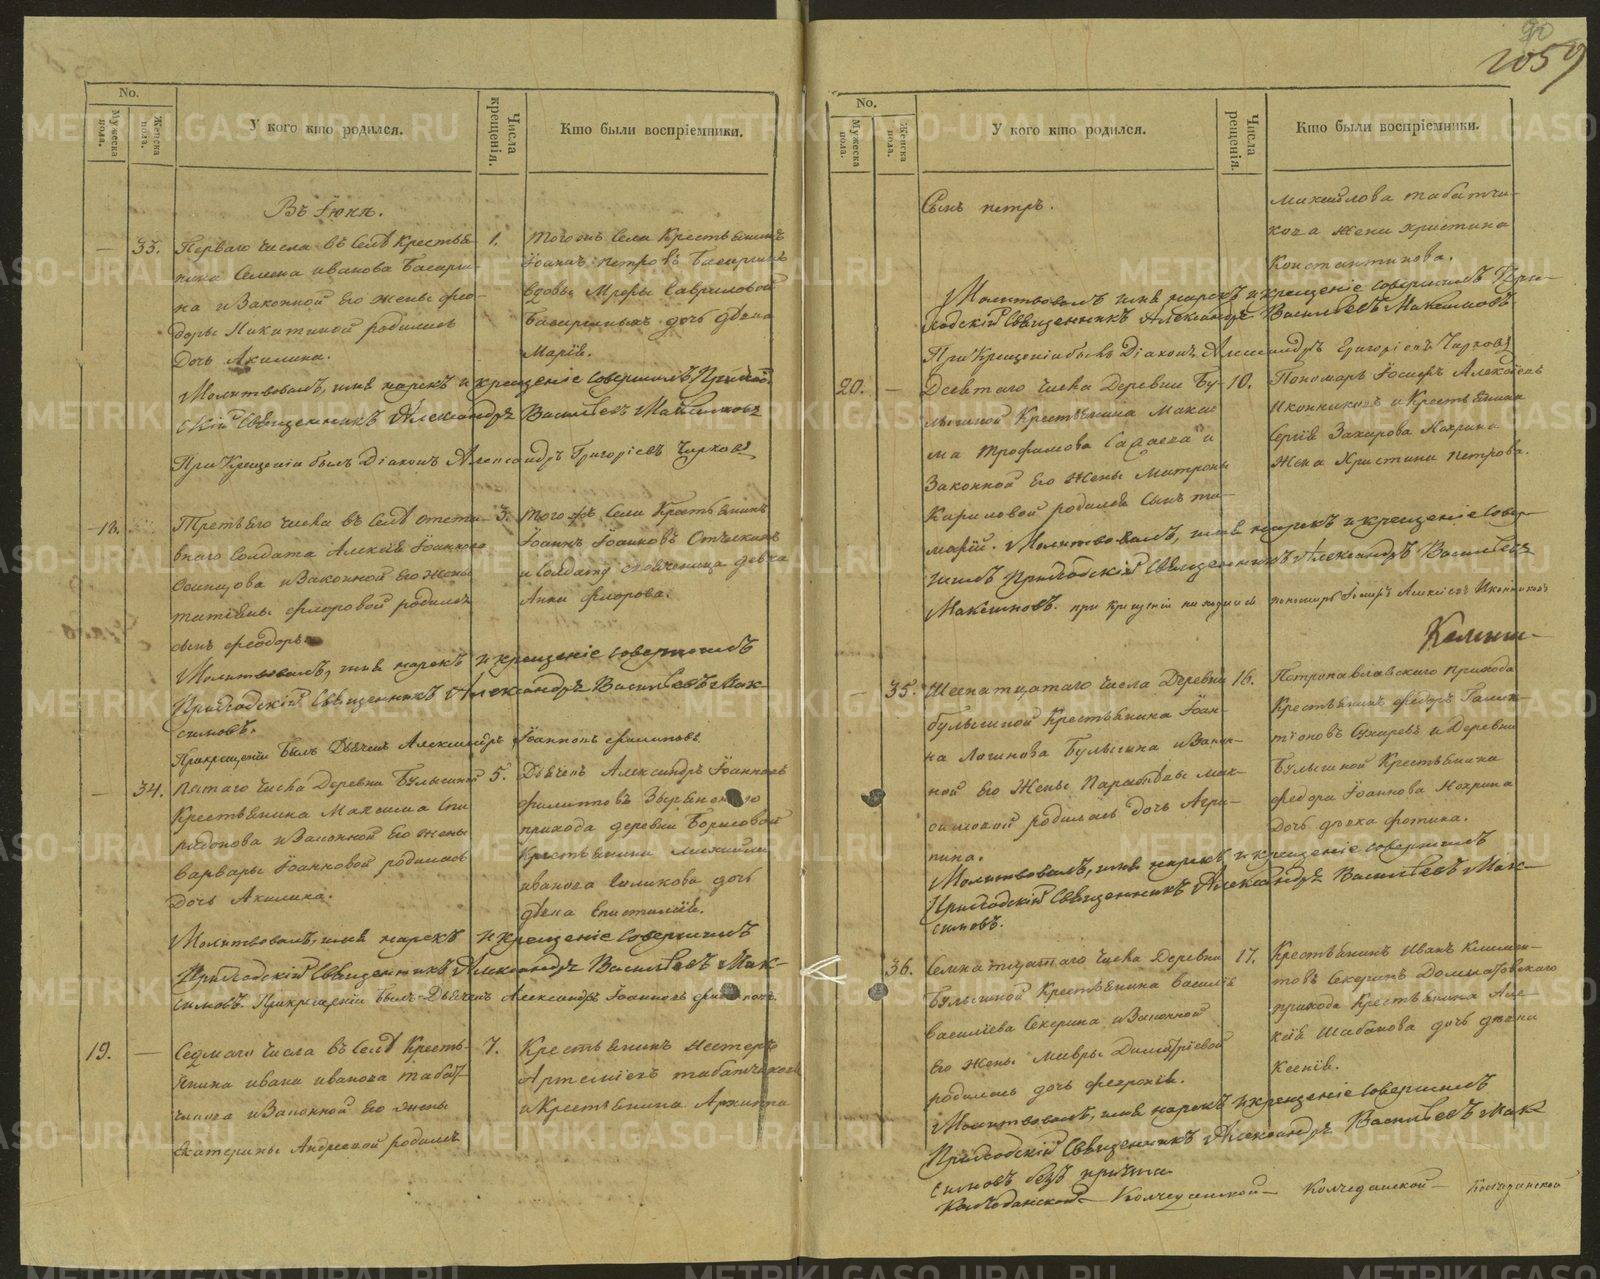 No.
Мужеска пола.
Женска пола.
У кого кто родился.
Числа крещенія.
Кто были воспріемники.
Въ Іюнѣ.
33. Перваго числа въ селѣ крестья-
нина Семена Иванова Басарги-
на и законной его жены Фео-
доры Никитиной родилась
дочь Акилина.
1. Тогожъ села крестьянинъ
Іоаннъ Петровъ Басаргинъ
вдовы Гавриловой
Басаргиныхъ дочь дѣвка
Марія.
Молитвовалъ, имя нарекъ и крещеніе совершилъ Приход-
скій Священникъ Александръ Васильевъ Максимовъ
При крещеніи былъ Діаконъ Александръ Григоріевъ Чирковъ
18. Третьего числа въ селѣ отста-
внаго солдата Алексія Іоаннова
и законной его жены
Татіяны Флоровой родился
сынъ Феодоръ
3. Того же села крестьянинъ
Іоаннъ Іоанновъ
и солдату дѣвка
Анна Флорова.
Молитвовалъ, имя нарекъ и крещеніе совершилъ
Приходскій Священникъ Александръ Васильевъ Мак-
симовъ.
При крещеніи былъ Дьячекъ Александръ Іоанновъ Филиповъ
34. Пятаго числа деревни Булыгиной
крестьянина Максима Спи
ридонова и законной его жены
Варвары Іоанновой родилась
дочь Акилина.
5. Дьячекъ Александръ Іоанновъ
Филиповъ
прихода деревни Борисовой
крестьянина Михаила
Иванова Голикова дочь
дѣвка Епистимія.
Молитвовалъ, имя нарекъ и крещеніе совершилъ
Приходскій Священникъ Александръ Васильевъ Мак-
симовъ. При крещеніи былъ Дьячекъ Александръ Іоанновъ
19. Седмаго числа въ селѣ кресть-
янина Ивана Иванова Табат-
чикова и законной его жены
Екатерины Андреевой родился
7. Крестьянинъ Нестеръ
Артеміевъ Табатчиковъ
и крестьянина Архиппа
90
2059
No.
Мужеска пола.
Женска пола.
У кого кто родился.
Числа крещенія.
Кто были воспріемники.
сынъ Петръ.
Михайлова Табатчи-
кова жена Христина
Константинова.
Молитвовалъ имя нарекъ и крещеніе совершилъ При-
ходскій Священникъ Александръ Васильевъ Максимовъ
При крещеніи былъ Діаконъ Александръ Григоріевъ Чирковъ
20. Девятаго числа деревни Бу-
лыгиной крестьянина Макси
ма Трофимова и
законной его жены Матроны
Кариловой родился сынъ Ти-
марій.
10. Пономарь Іосифъ Алексіевъ
Иконниковъ и крестьянина
Сергія Захарова Кохрина
жена Христина Петрова.
Молитвовалъ, имя нарекъ и крещеніе совер-
шилъ Приходскій Священникъ Александръ Васильевъ
Максимовъ. при крещеніи находился пономарь Іосифъ Алексіевъ Иконниковъ
35. Шеснатцатаго числа деревни
Булыгиной крестьянина Іоан-
на Логинова Булыгина и закон-
ной его жены Парасковьи Мак-
симовой родилась дочь Агри-
пина.
16. Петропавловскаго прихода
крестьянинъ Федоръ Галак-
тіоновъ Сухаревъ и деревни
Булыгиной крестьянина
Федора Іоаннова Кохрина
дочь дѣвка Фотина.
Молитвовалъ, имя нарекъ и крещеніе совершилъ
Приходскій Священникъ Александръ Васильевъ Мак-
симовъ.
36. Семнатцатаго числа деревни
Булыгиной крестьянина Василія
Василіева Секерина и законной
его жены Мавры Димитріевой
родилась дочь Феѵронія.
17. Крестьянинъ Иванъ Климен-
товъ Секеринъ Долматовскаго
прихода крестьянина Але-
ксія Шабакова дочь дѣвка
Ксенія.
Молитвовалъ, имя нарекъ и крещеніе совершилъ
Приходскій Священникъ Александръ Васильевъ Мак-
симовъ безъ причта
Колчеданской Колчеданской Колчеданской Колчеданской